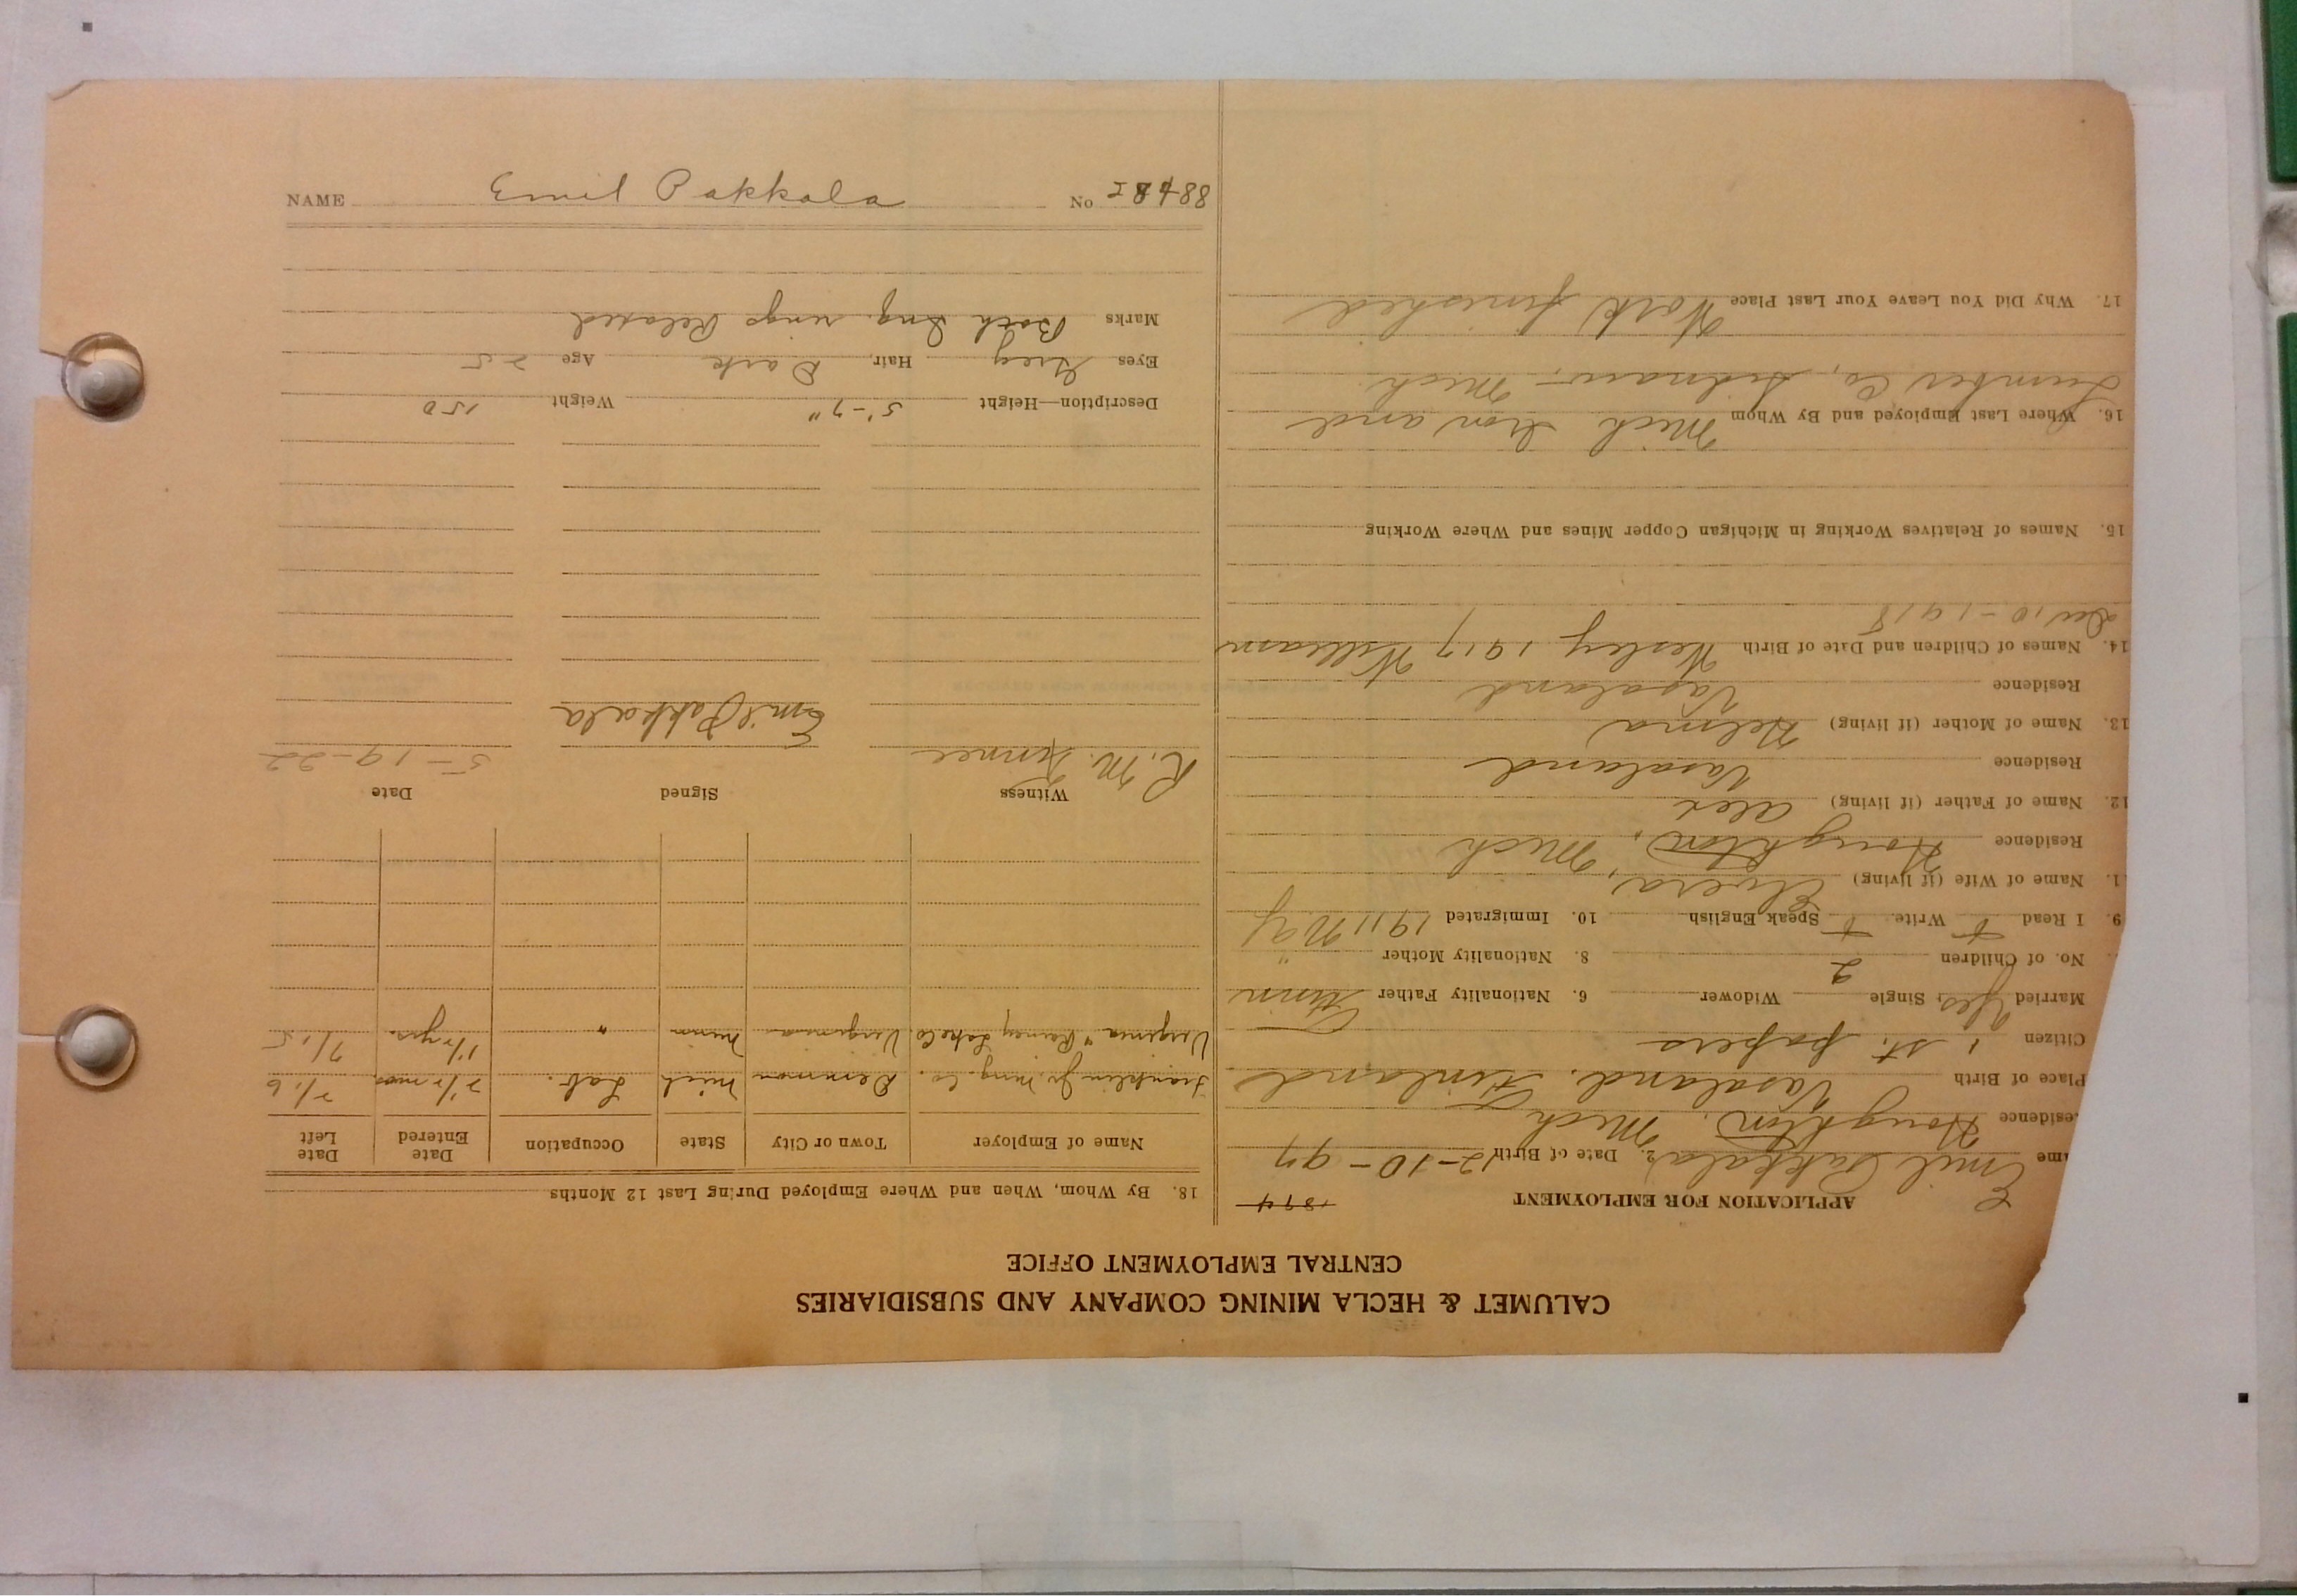 CALUMET & HECLA MINING COMPANY AND SUBSIDIARIES
CENTRAL EMPLOYMENT OFFICE
APPLICATION FOR EMPLOYMENT 1894
ame Emil Pakkala 2. Date of Birth 12-10-97
esidence Houghton, Mich
Place of Birth Vasaland. Finland
Citizen 1 st. papers
Married Yes, Single Widower 6. Nationality Father Finn
No. of Children 2 8. Nationality Mother "
9. I Read + Write + Speak English 10. Immigrated 1911 May
1. Name of Wife (if living) Elvera
Residence Houghton, Mich
12. Name of Father (if living) Alex
Residence Vasaland
13. Name of Mother (if living) Helma
Residence Vasaland
14. Names of Children and Date of Birth Wesley 1917 William
Dec 10-1918
15. Names of Relatives Working in Michigan Copper Mines and Where Working
16. Where Last Employed and By Whom Mich Iron and
Lumber Co, Sidnaw - Mich
17. Why Did You Leave Your Last Place Work finished
18. By Whom, When and Where Employed During Last 12 Months
Name of Employer Town or City State Occupation Date Entered Date Left
Franklin Jr. Mng. Co. Demmon Mich Lab. 2 1/2 mos. 2/16
Virginia " Rainey Lake Co. Virginia Minn " 1 1/2 yrs. 7/15
Witness Signed Date
R. M. Emil Pakkala 5-19-22
Description—Height 5'-7" Weight 150
Eyes Grey Hair, Dark Age 25
Marks Both Ing. rings Relaxed
NAME Emil Pakkala No 28488